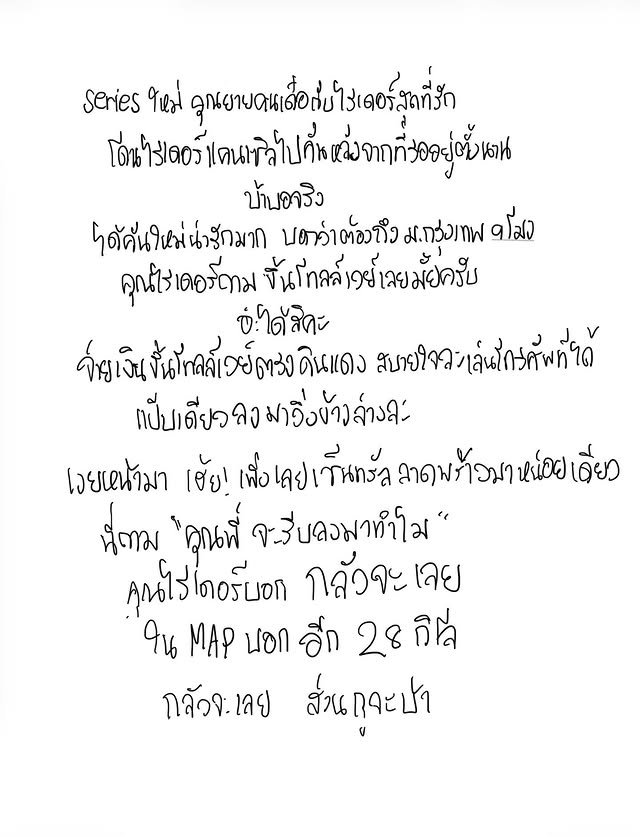 series ใหม่ คุณยายคนเดือกับไรเดอร์สุดที่รัก
โดนไรเดอร์แคนเซิลไปคันหลังจากที่รออยู่ตั้งนาน
บ้าบอจริง
ได้คันใหม่น่ารักมาก บอกว่าต้องถึง ม.กรุงเทพ 9โมง
คุณไรเดอร์ถาม ขึ้นโทลล์เวย์เลยมั้ยครับ
อ่ะได้สิคะ
จ่ายเงินขึ้นโทลล์เวย์ตรงดินแดง สบายใจละเล่นโทรศัพท์ได้
แป๊บเดียวลงมาวิ่งข้างล่างละ
เงยหน้ามา เฮ้ย! เพิ่งเลยเซ็นทรัลลาดพร้าวมาหน่อยเดียว
นี่ถาม "คุณพี่ จะรีบลงมาทำไม"
คุณไรเดอร์บอก กลัวจะเลย
ใน MAP บอก อีก 28 กิโล
กลัวจะเลย ส่วนกูจะบ้า